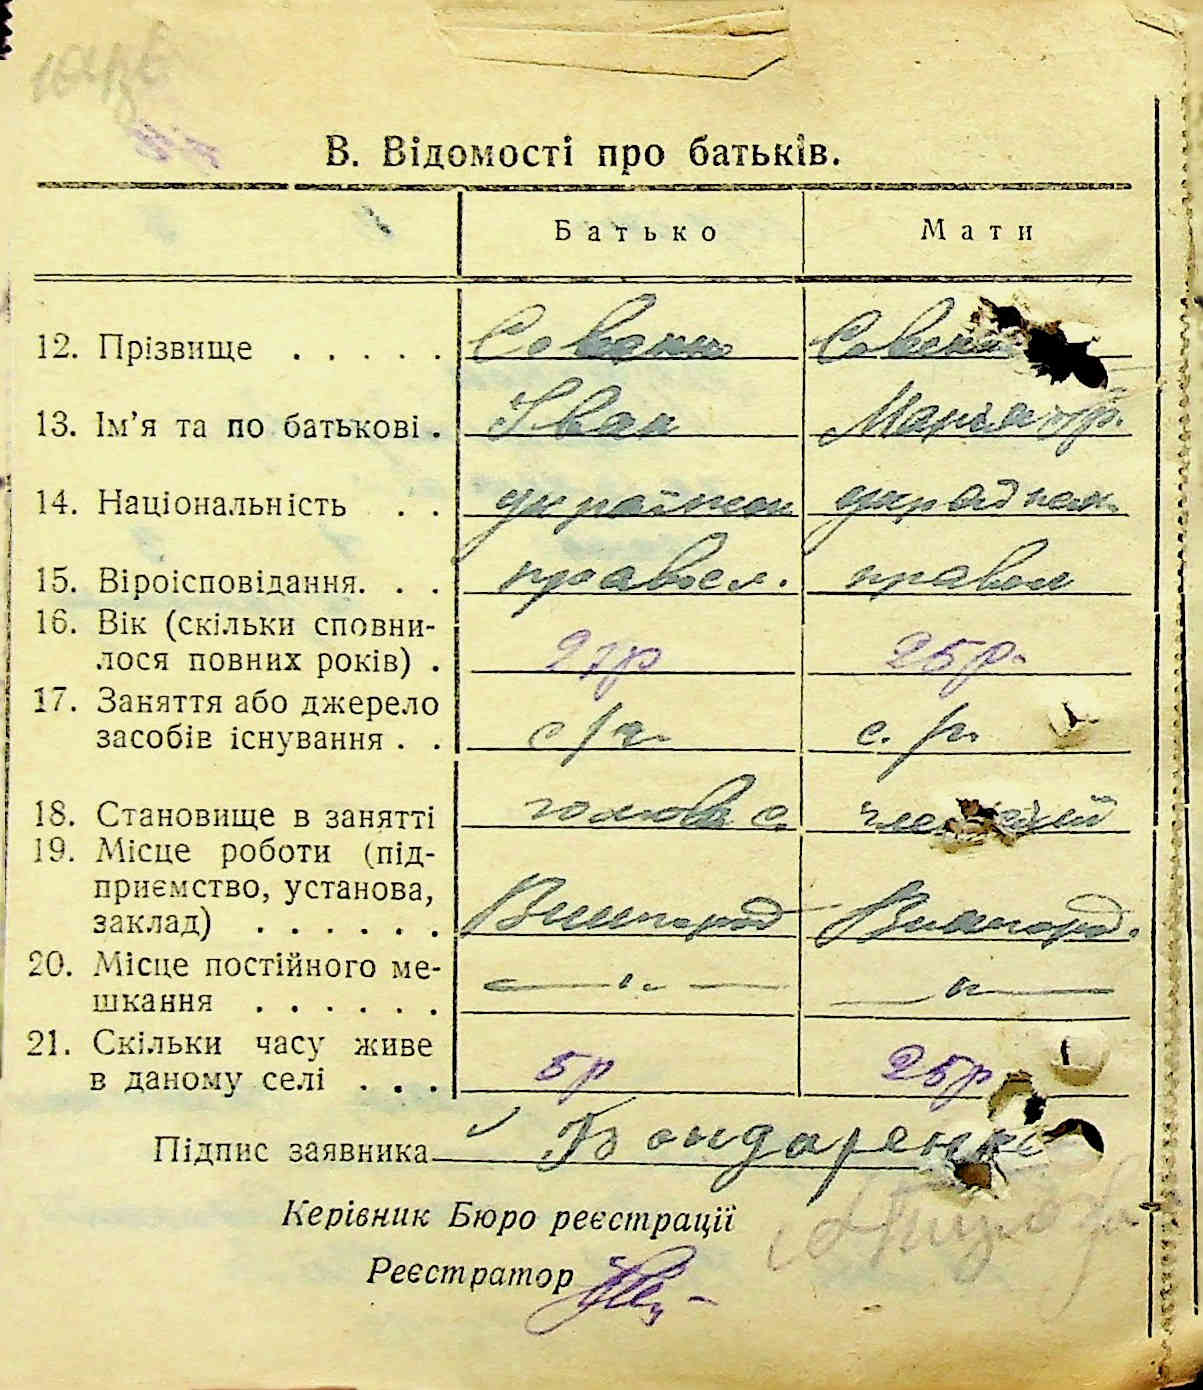 В. Відомості про батьків.
Батько Мати
12. Прізвище . . . . .
13. Ім’я та по батькові . Іван Марія
14. Національність . . україн
15. Віроісповідання. . . правосл. правосл
16. Вік (скільки сповни-
лося повних років) . 27р 25р.
17. Заняття або джерело
засобів існування . . с/г. с./г.
18. Становище в занятті голова с.
19. Місце роботи (під-
приємство, установа,
заклад) . . . . . . Вишгород Вишгород.
20. Місце постійного ме-
шкання . . . . . . —〃— —〃—
21. Скільки часу живе
в даному селі . . . 5р 25р
Підпис заявника Бондаренко
Керівник Бюро реєстрації
Реєстратор